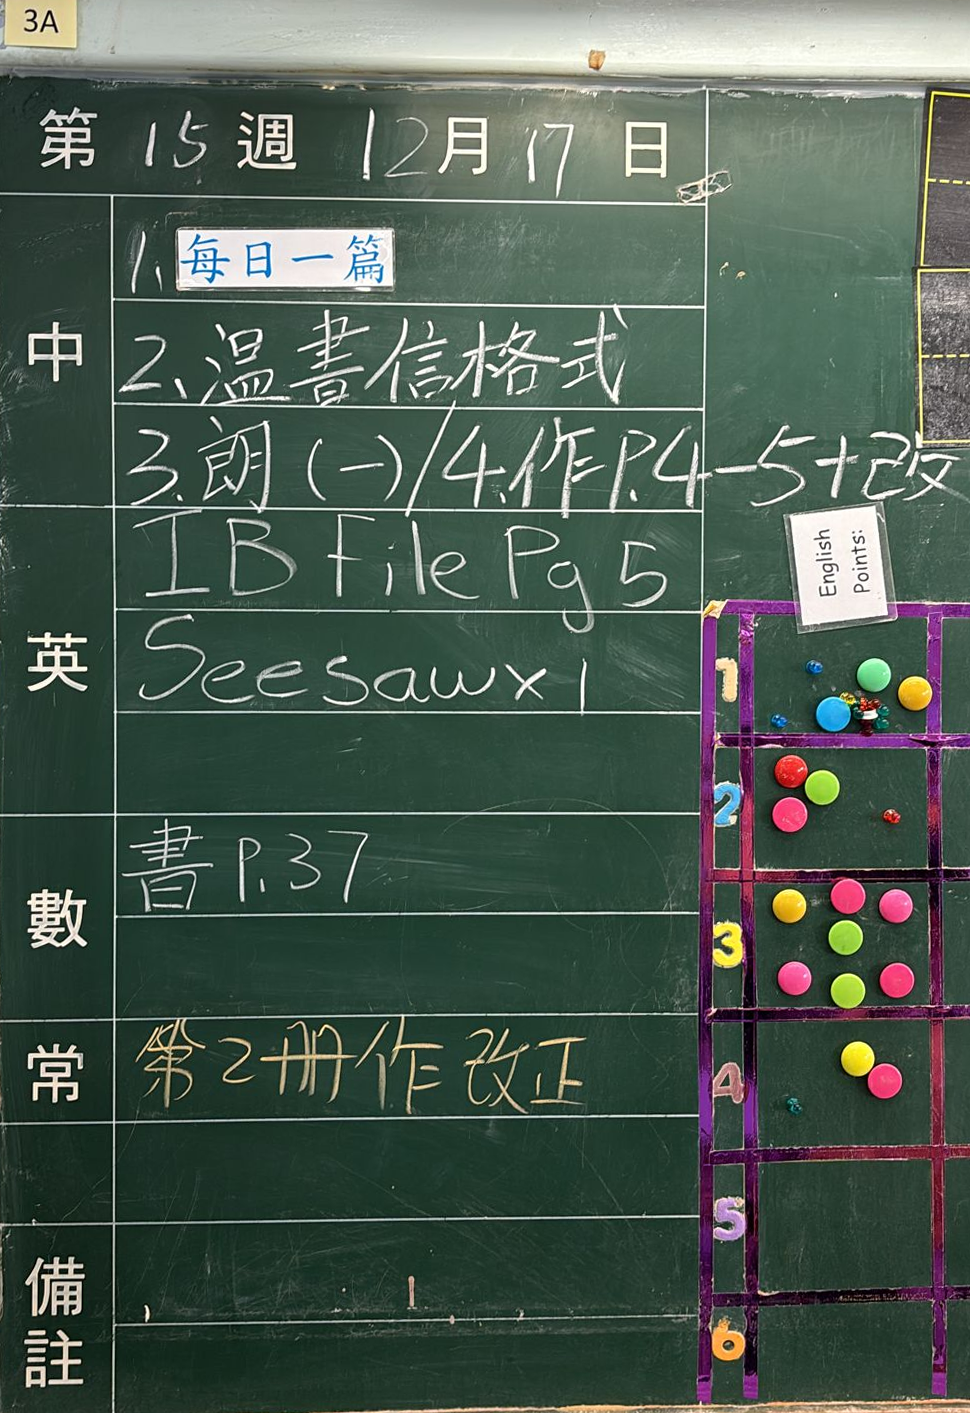 3A
第 15 週 12 月 17 日
中
1. 每日一篇
2、温書信格式
3.朗(一)/4.作P.4-5+改
英
IB File Pg 5
Seesaw x 1
數
書 P.37
常
第2冊作改正
備註
English
Points:
1
2
3
4
5
6